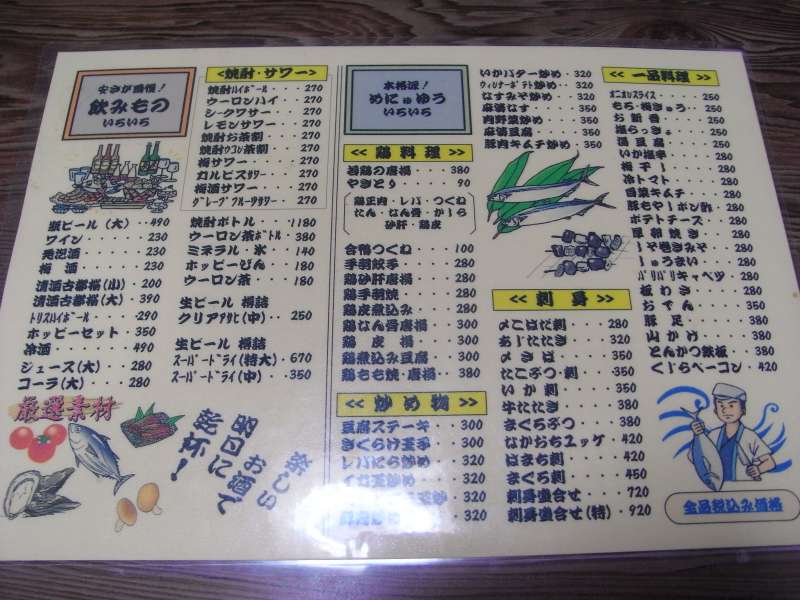 安さが自慢！
飲みもの
いろいろ
<焼酎・サワー>
焼酎ハイボール・・270
ウーロンハイ・・・270
シークワサー・・・270
レモンサワー・・・270
焼酎お茶割・・・270
焼酎ウコン茶割・・270
梅サワー・・・・270
カルピスサワー・・270
梅酒サワー・・・270
グレープフルーツサワー・・270
瓶ビール(大)・・490
ワイン・・・・・230
発泡酒・・・・・230
梅酒・・・・・・230
清酒古都桜(小)・200
清酒古都桜(大)・390
トリスハイボール・・・290
ホッピーセット・・350
冷酒・・・・・・490
ジュース(大)・・280
コーラ(大)・・・280
焼酎ボトル・・・1180
ウーロン茶ボトル・・380
ミネラル・氷・・140
ホッピーびん・・180
ウーロン茶・・・180
生ビール 樽詰
クリアアサヒ(中)・・250
生ビール 樽詰
スーパードライ(特大)・670
スーパードライ(中)・・350
厳選素材
楽しい
お酒で
明日に
乾杯！
本格派！
めにゅゆう
いろいろ
<<鶏料理>>
若鶏の唐揚・・・380
やきとり・・・・90
鶏正肉・レバ・つくね
たん・なん骨・かしら
砂肝・鶏皮
合鴨つくね・・・100
手羽餃子・・・・280
鶏砂肝唐揚・・・280
鶏手羽焼・・・・280
鶏皮煮込み・・・280
鶏なん骨唐揚・・300
鶏皮揚・・・・・300
鶏煮込み豆腐・・300
鶏もも焼・唐揚・・380
<<炒め物>>
豆腐ステーキ・・300
きくらげ玉子・・300
レバにら炒め・・320
320
320
320
いかバター炒め・320
ウィンナーポテト炒め・320
なすみそ炒め・・320
麻婆なす・・・・350
肉野菜炒め・・・350
麻婆豆腐・・・・350
豚肉キムチ炒め・350
<<刺身>>
〆こはだ刺・・・280
あじたたき・・・320
〆さば・・・・・350
たこぶつ・刺・・350
いか刺・・・・・350
牛たたき・・・・380
まぐろぶつ・・・380
なかおちユッケ・420
はまち刺・・・・420
まぐろ刺・・・・450
刺身盛合せ・・・720
刺身盛合せ(特)・920
<<一品料理>>
オニオンスライス・・250
もろ・梅きゅう・・250
お新香・・・・・250
塩らっきょ・・・250
湯豆腐・・・・・250
いか塩辛・・・・280
梅干し・・・・・280
冷トマト・・・・280
白菜キムチ・・・280
豚もやしポン酢・280
ポテトチーズ・・280
厚卵焼き・・・・280
しそ巻きみそ・・280
しゅうまい・・・280
パリパリキャベツ・280
板わさ・・・・・350
おでん・・・・・350
豚足・・・・・・380
山かけ・・・・・380
とんかつ鉄板・・380
くじらベーコン・420
全品税込み価格